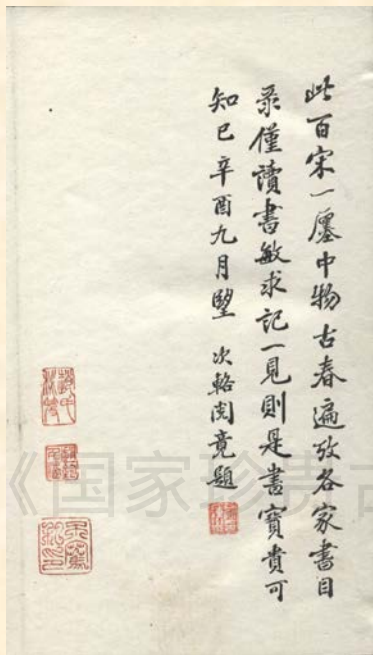 此百宋一廛中物古春遍攷各家書目
录僅讀書敏求記一見則是書寶貴可
知已辛酉九月朢 次輅閲竟題
《国家珍贵古